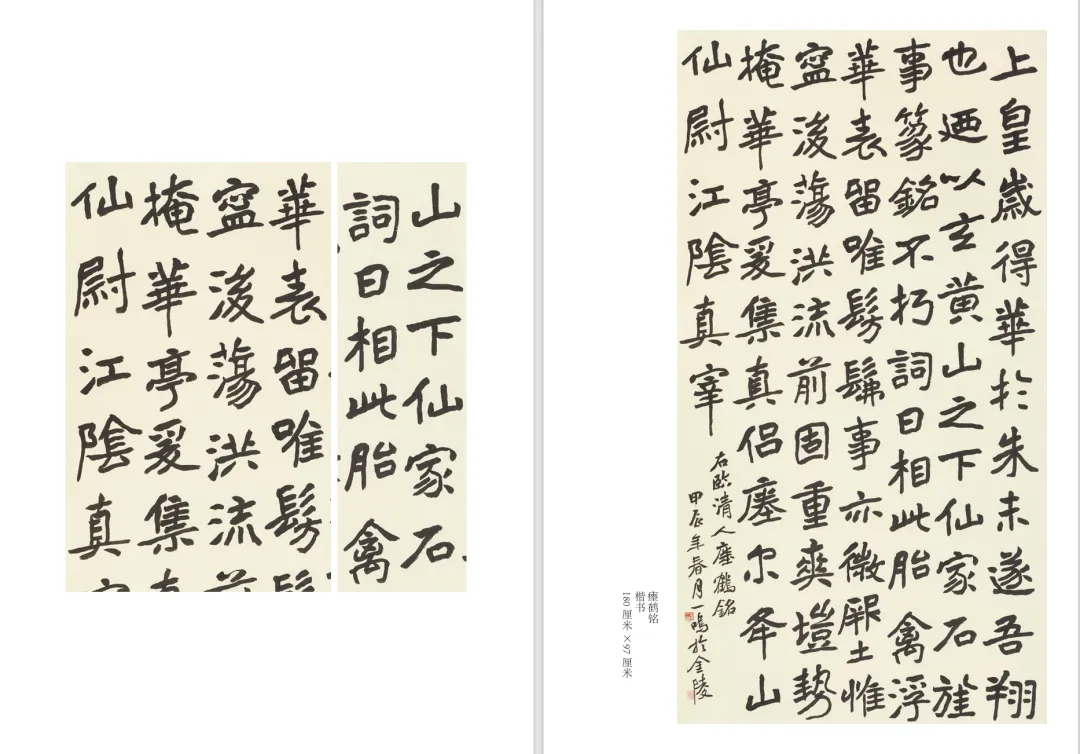 山之下仙家石
詞曰相此胎禽
華表留唯髣
寍浚蕩洪流
掩華亭爰集
仙尉江陰真
上皇歲得華於朱未遂吾翔
也迺以玄黄山之下仙家石旌
事篆銘不朽詞曰相此胎禽浮
華表留唯髣髴事亦微厥土惟
寍浚蕩洪流前固重爽塏勢
掩華亭爰集真侣瘞尔夅山
仙尉江陰真宰
右臨清人瘞鶴銘
甲辰年春月一鳴於金陵
瘗鹤铭
楷书
180 厘米 ×97 厘米